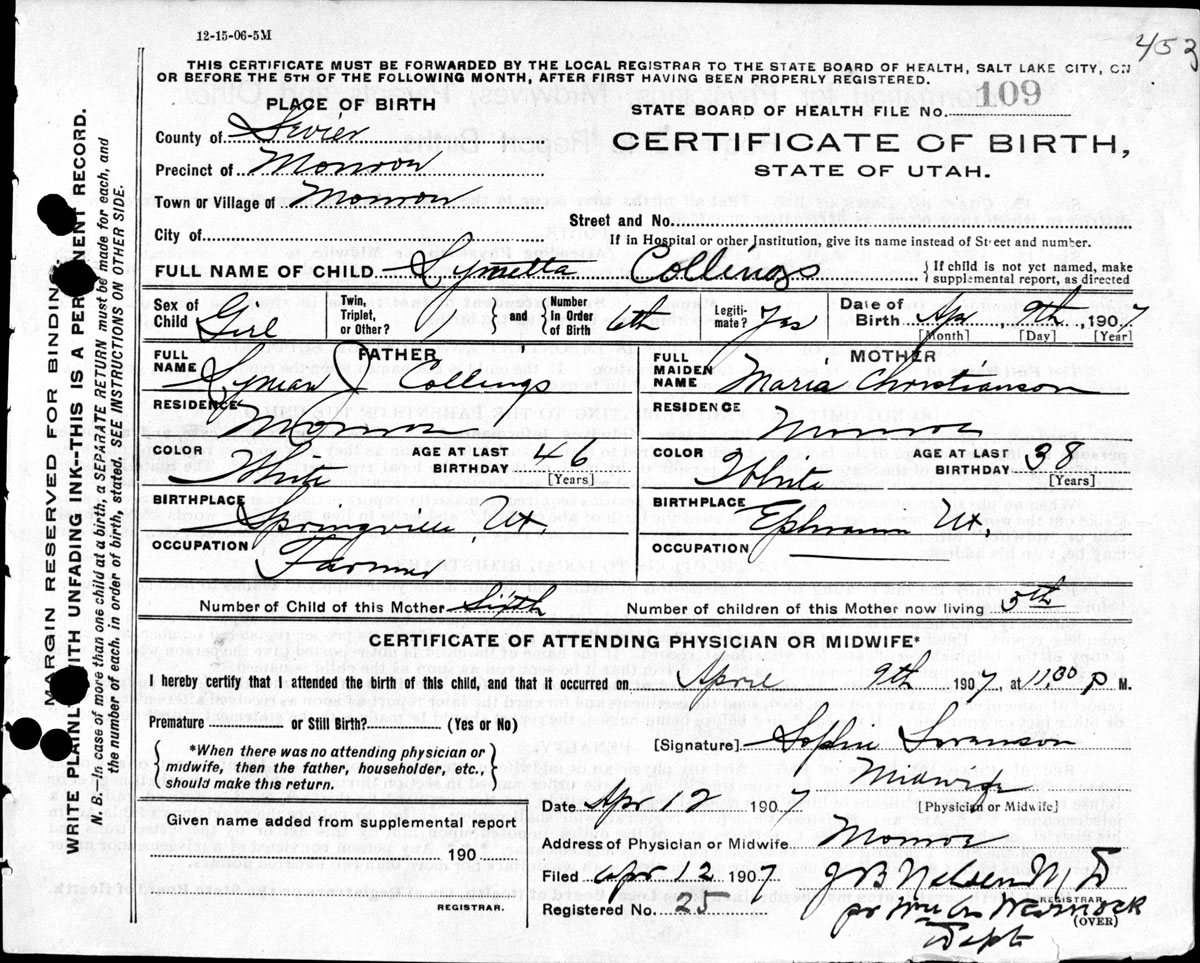 12-15-06-5M
453
THIS CERTIFICATE MUST BE FORWARDED BY THE LOCAL REGISTRAR TO THE STATE BOARD OF HEALTH, SALT LAKE CITY, ON
OR BEFORE THE 5TH OF THE FOLLOWING MONTH, AFTER FIRST HAVING BEEN PROPERLY REGISTERED.
PLACE OF BIRTH
STATE BOARD OF HEALTH FILE NO. 109
County of Sevier
CERTIFICATE OF BIRTH,
Precinct of Monroe
STATE OF UTAH.
Town or Village of Monroe
Street and No.
City of
If in Hospital or other Institution, give its name instead of Street and number.
FULL NAME OF CHILD Collings { If child is not yet named, make supplemental report, as directed
Sex of Child Girl Twin, Triplet, or Other? { and } Number In Order of Birth 6th Legiti-mate? Yes Date of Birth Apr, 9th, 1907
[Month] [Day] [Year]
FATHER
FULL NAME Lyman J Collings
RESIDENCE Monroe
COLOR White AGE AT LAST BIRTHDAY 46 [Years]
BIRTHPLACE Springville, Ut.
OCCUPATION Farmer
MOTHER
FULL MAIDEN NAME Maria Christianson
RESIDENCE Monroe
COLOR White AGE AT LAST BIRTHDAY 38 [Years]
BIRTHPLACE Ephraim Ut.
OCCUPATION
Number of Child of this Mother Sixth Number of children of this Mother now living 5th
CERTIFICATE OF ATTENDING PHYSICIAN OR MIDWIFE*
I hereby certify that I attended the birth of this child, and that it occurred on April 9th 1907, at 11.00 P M.
Premature or Still Birth? (Yes or No)
{ *When there was no attending physician or midwife, then the father, householder, etc., should make this return. }
[Signature] Sophie Sorenson
Midwife
[Physician or Midwife]
Date Apr 12 1907
Given name added from supplemental report
190
REGISTRAR.
Address of Physician or Midwife Monroe
Filed Apr 12 1907 J B Nelsen M D
REGISTRAR.
Registered No. 25
(OVER)
Dept
MARGIN RESERVED FOR BINDING.
WRITE PLAINLY WITH UNFADING INK--THIS IS A PERMANENT RECORD.
N. B.--In case of more than one child at a birth, a SEPARATE RETURN must be made for each, and
the number of each, in order of birth, stated. SEE INSTRUCTIONS ON OTHER SIDE.